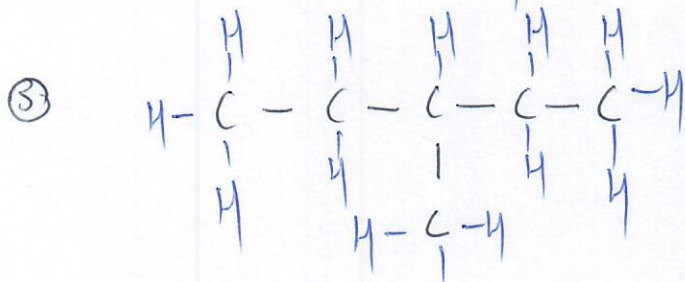 H H H H H
③ H - C - C - C - C - C - H
H H H H
H - C - H